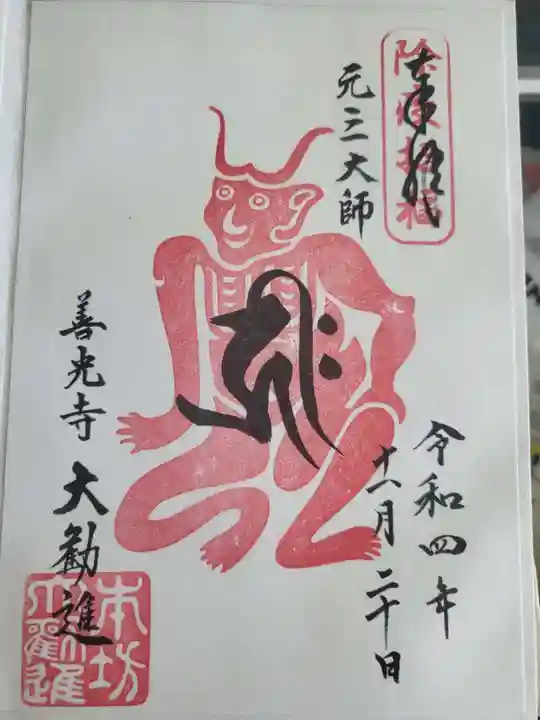 奉拝
除災招福
元三大師
令和四年
十一月二十日
善光寺 大勧進
本坊
大勸進